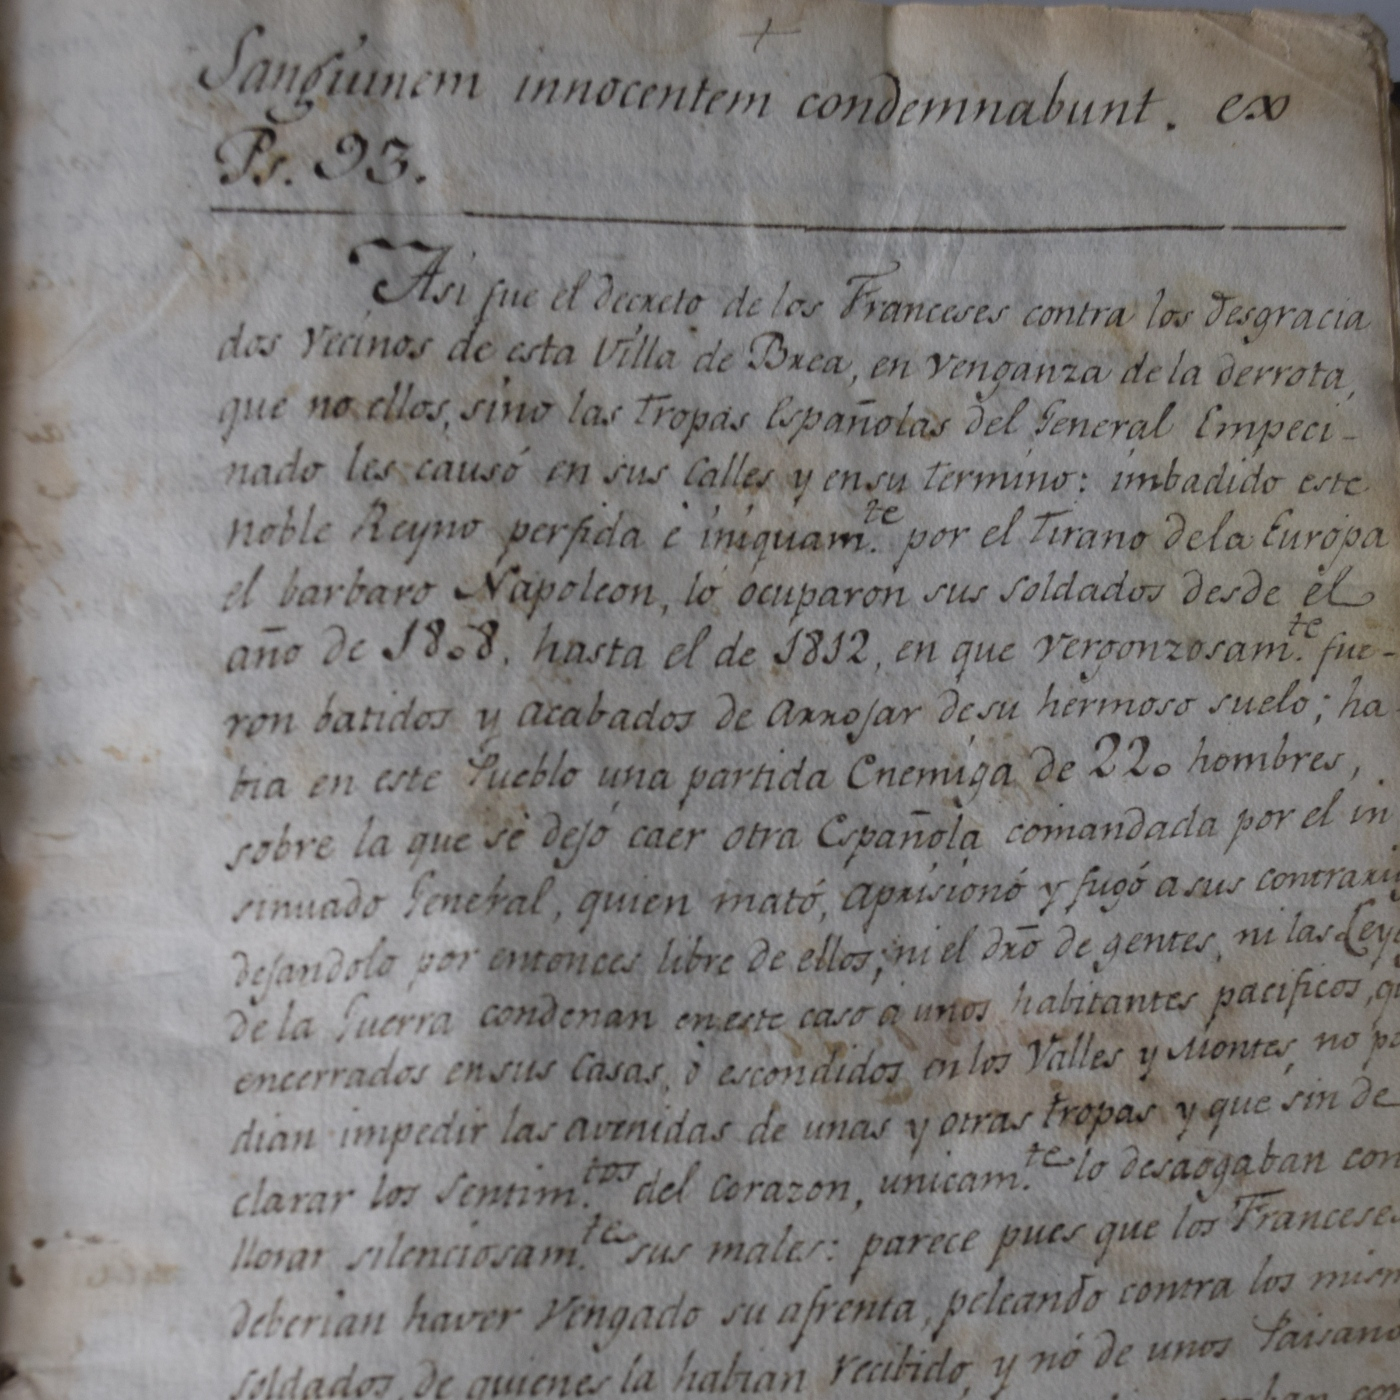 +
Sanguinem innocentem condemnabunt. ex
Ps. 93.
Asi fue el decreto de los Franceses contra los desgracia
dos Vecinos de esta Villa de Brea, en venganza de la derrota,
que no ellos, sino las tropas Españolas del General Empeci-
nado les causó en sus Calles y en su termino: imbadido este
noble Reyno perfida è iniquam.te por el Tirano de la Europa
el barbaro Napoleon, lo ocuparon sus soldados desde el
año de 1808. hasta el de 1812, en que vergonzosam.te fue-
ron batidos y acabados de arrojar de su hermoso suelo; ha-
bia en este Pueblo una partida Enemiga de 220 hombres,
sobre la que se dejó caer otra Española comandada por el in
sinuado General, quien mató, aprisionó y fugó a sus contrari
dejandolo por entonces libre de ellos; ni el dr̃o de gentes, ni las Ley
de la Guerra condenan en este caso à unos habitantes pacificos, qu
encerrados en sus Casas, ò escondidos en los Valles y Montes, no po
dian impedir las avenidas de unas y otras tropas y que sin de
clarar los sentim.tos del corazon, unicam.te lo desaogaban con
llorar silenciosam.te sus males: parece pues que los Franceses
deberian haver vengado su afrenta, peleando contra los mism
soldados, de quienes la habian recibido, y nó de unos Paisano